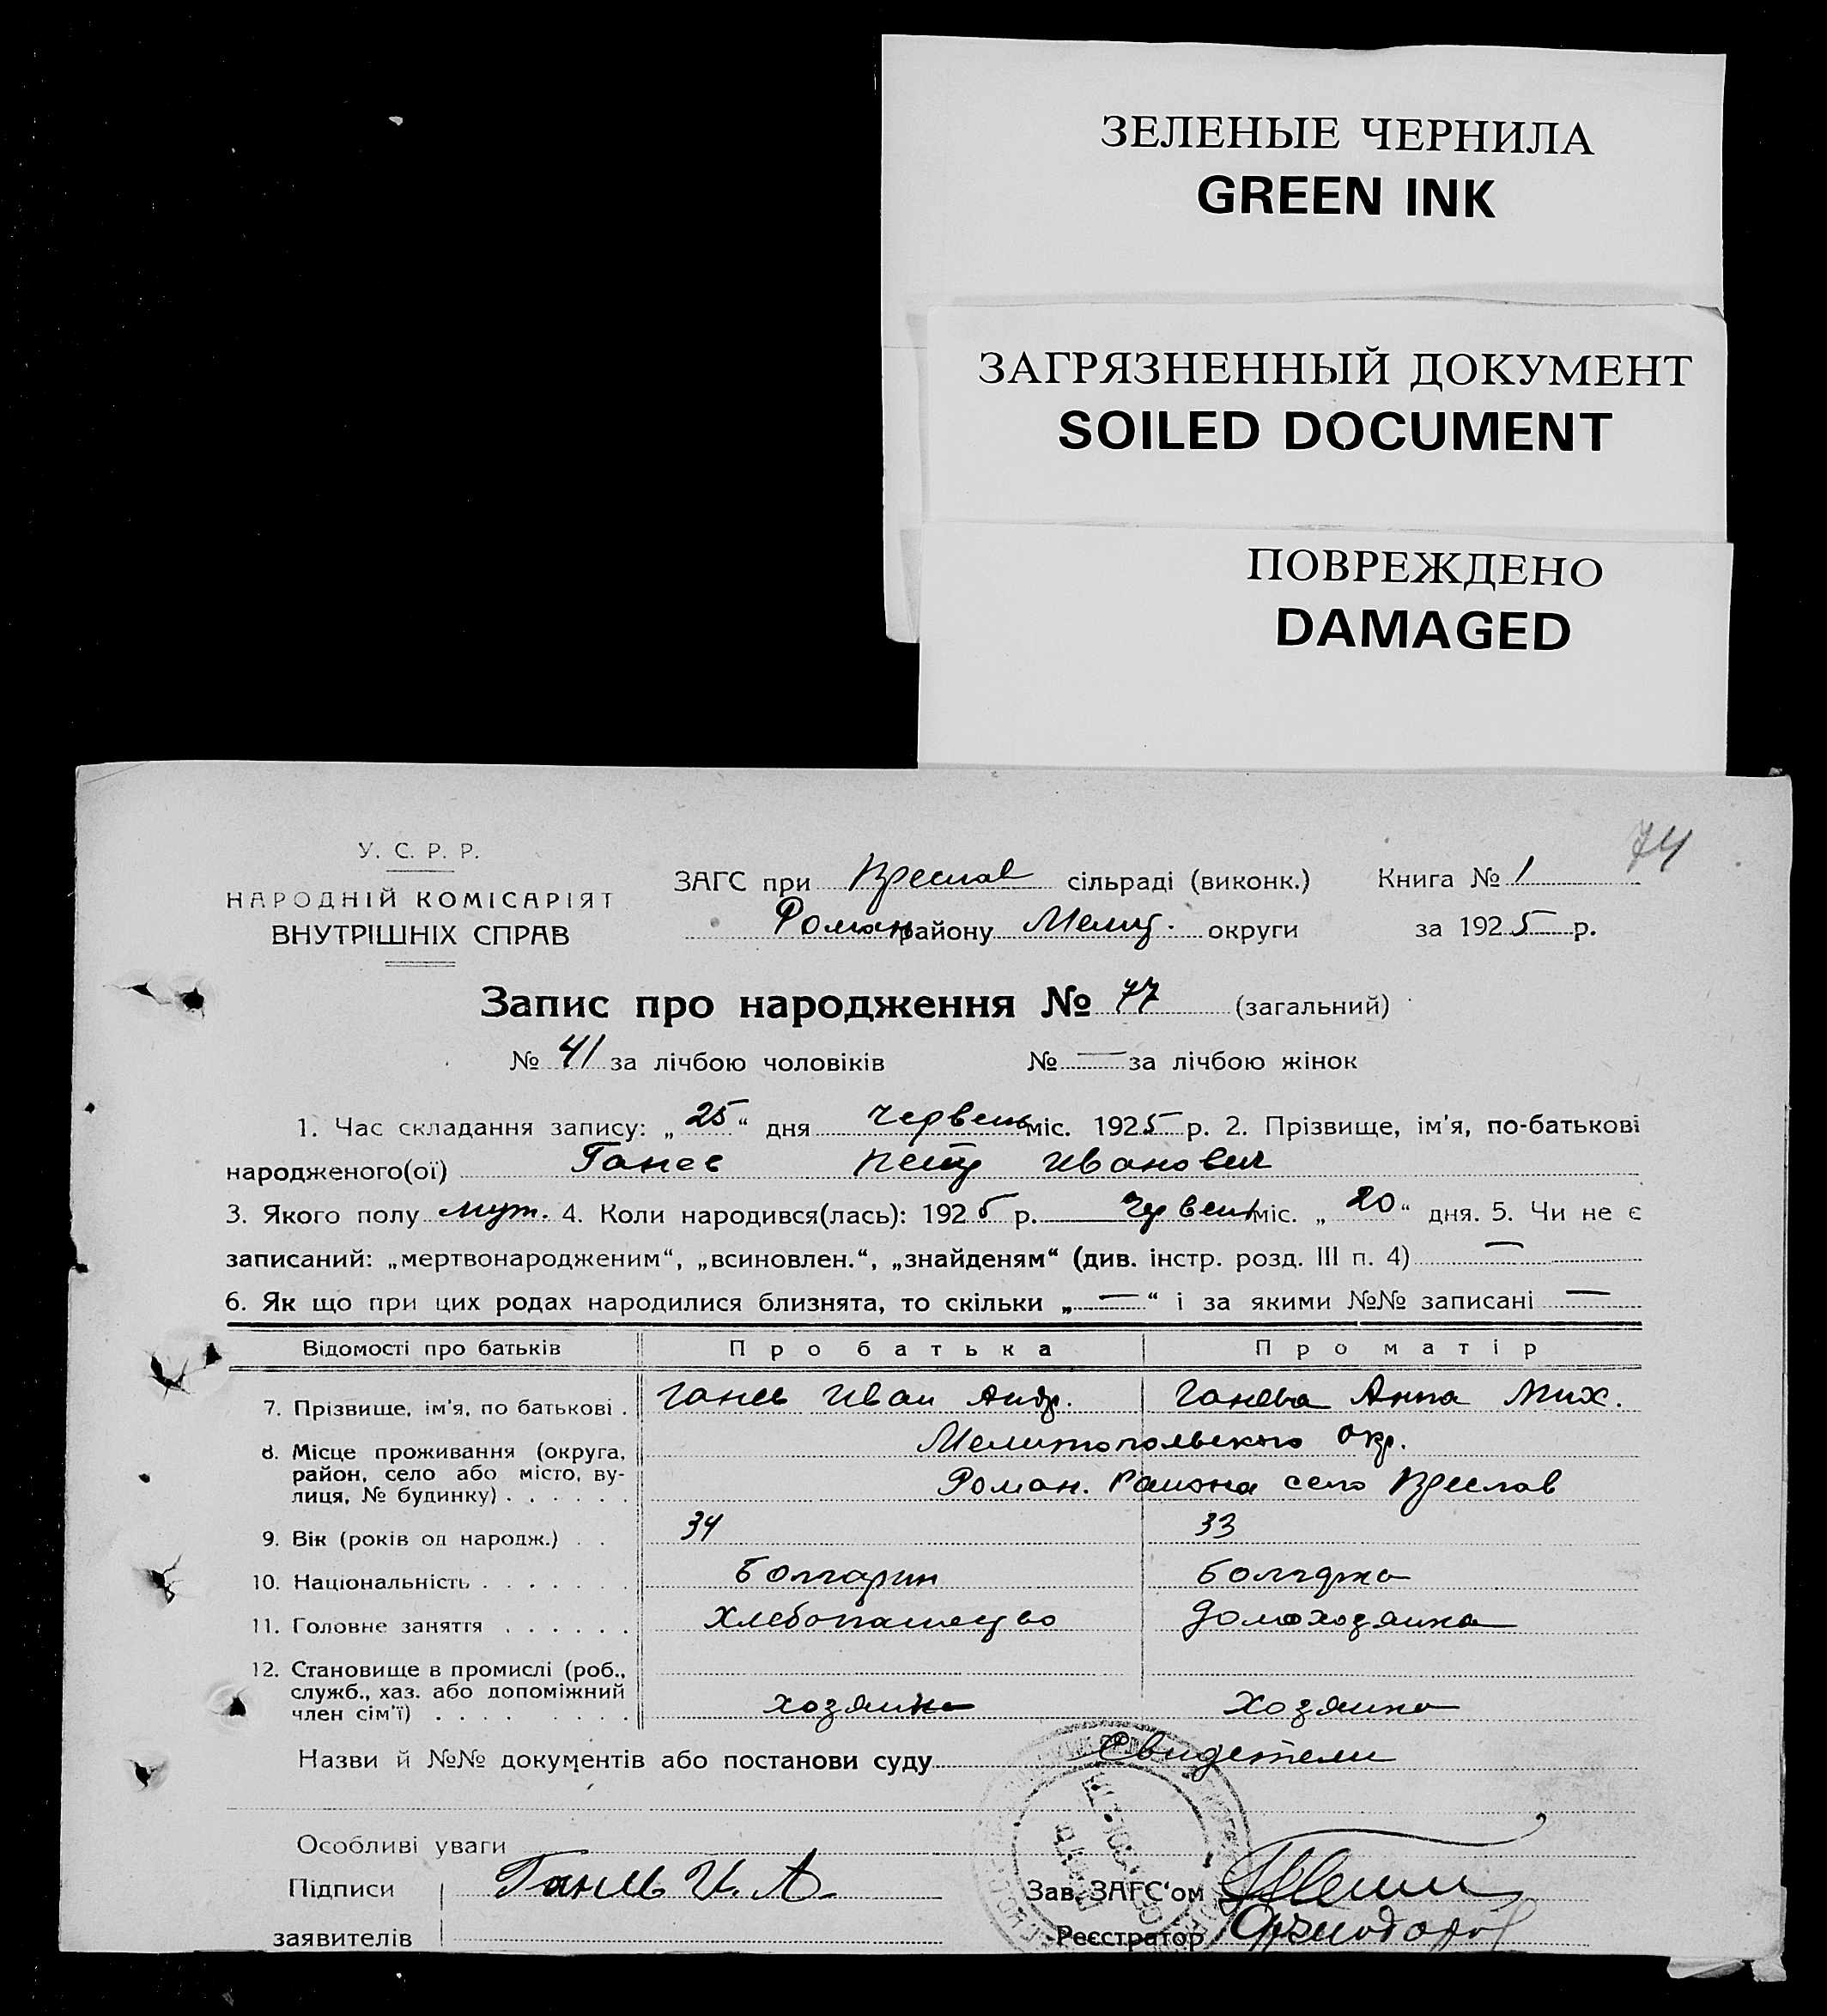 ЗЕЛЕНЫЕ ЧЕРНИЛА
GREEN INK
ЗАГРЯЗНЕННЫЙ ДОКУМЕНТ
SOILED DOCUMENT
ПОВРЕЖДЕНО
DAMAGED
74
У. С. Р. Р.
НАРОДНІЙ КОМІСАРІЯТ
ВНУТРІШНІХ СПРАВ
ЗАГС при Преслав сільраді (виконк.) Книга № 1
Роман району Мелит. округи за 1925 р.
Запис про народження № 77 (загальний)
№ 41 за лічбою чоловіків № — за лічбою жінок
1. Час складання запису: „25“ дня червень міс. 1925 р. 2. Прізвище, ім'я, по-батькові
народженого(ої) Ганев Петр Иванович
3. Якого полу муж. 4. Коли народився(лась): 1925 р. Червень міс. „20“ дня. 5. Чи не є
записаний: „мертвонародженим“, „всиновлен.“, „знайденям“ (див. інстр. розд. III п. 4) —
6. Як що при цих родах народилися близнята, то скільки „—“ і за якими №№ записані —
Відомості про батьків Про батька Про матір
7. Прізвище, ім'я, по батькові . Ганев Иван Андр. Ганева Анна Мих.
8. Місце проживання (округа, район, село або місто, вулиця, № будинку) . . . . . . Мелитопольского Окр.
Роман. Района село Преслав
9. Вік (років од народж.) . . 34 33
10. Національність . . . . . . Болгарин болгарка
11. Головне заняття . . . . . . Хлебопашество домохозяйка
12. Становище в промислі (роб., служб., хаз. або допоміжний член сім'ї) . . . . . . . . хозяина хозяйка
Назви й №№ документів або постанови суду Свидетели
Особливі уваги
Підписи Ганев И. А. Зав. ЗАГС'ом
заявителів Реєстратор